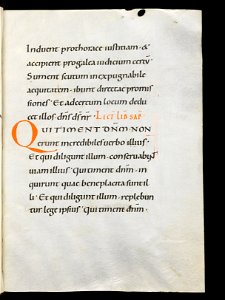 Induent prothorace iustitiam · &
accipient progalea iudicium certū
Sument scutum inexpugnabile
aequitatem · ibunt directae promis
siones · Et ad certum locum dedu
cet illos dn̄s ds̄ nr̄ · Lec̄ lib sap̄
QUI TIMENT DN̄M · NON
erunt incredibiles uerbo illius ·
Et qui diligunt illum · conseruabuɴt
uiam illius · Qui timent dn̄m · in
quirunt quae beneplacita sunt il
li · Et qui diligunt illum · replebun
tur lege ipsius · Qui timent dn̄m ·